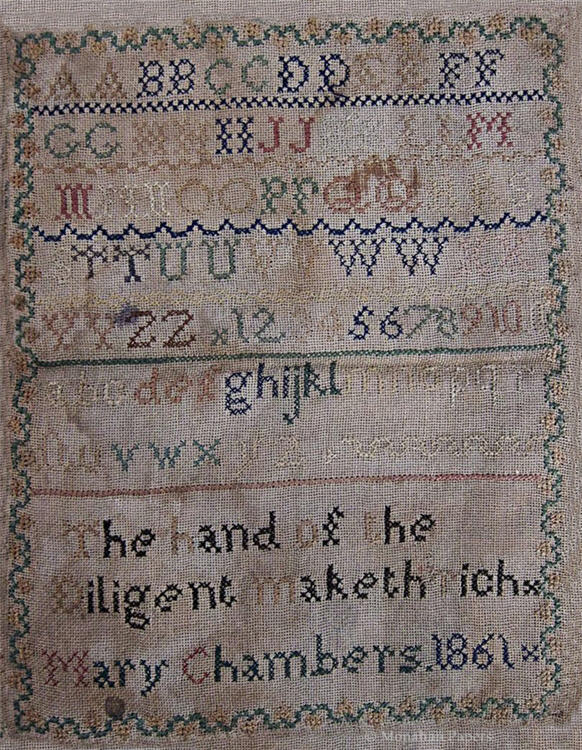 A A B B C C D D E E F F
G G H H J J L L M
M N N O O P P Q Q R R S
S T T U U V V W W
Y Y Z Z x 1 2 5 6 7 8 9 10
a b c d e f g h i j k l m n o p q r
t u v w x y z
The hand of the
Diligent maketh rich x
Mary Chambers. 1861 x
© Monaghan Papers